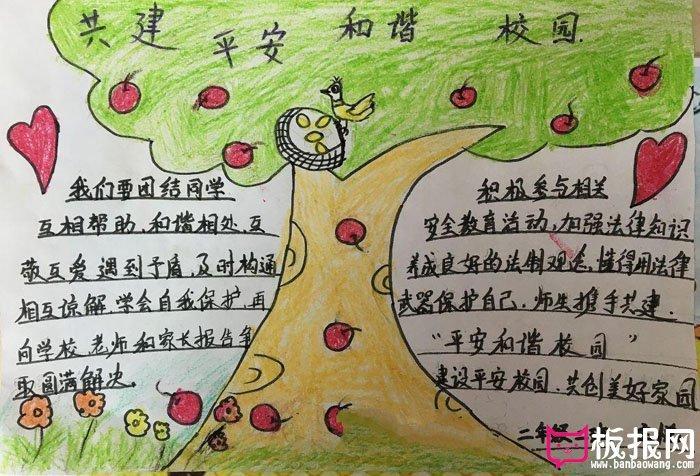 共建 平安 和谐 校园.
我们要团结同学
互相帮助,和谐相处,互
敬互爱,遇到予盾,及时构通
相互谅解,学会自我保护,再
向学校、老师和家长报告争
取圆满解决.
积极参与相关
安全教育活动,加强法律知识
养成良好的法制观念,懂得用法律
武器保护自己.师生携手共建.
“平安和谐校园”
建设平安校园.共创美好家园
二年级
板报网
www.banbaowang.com